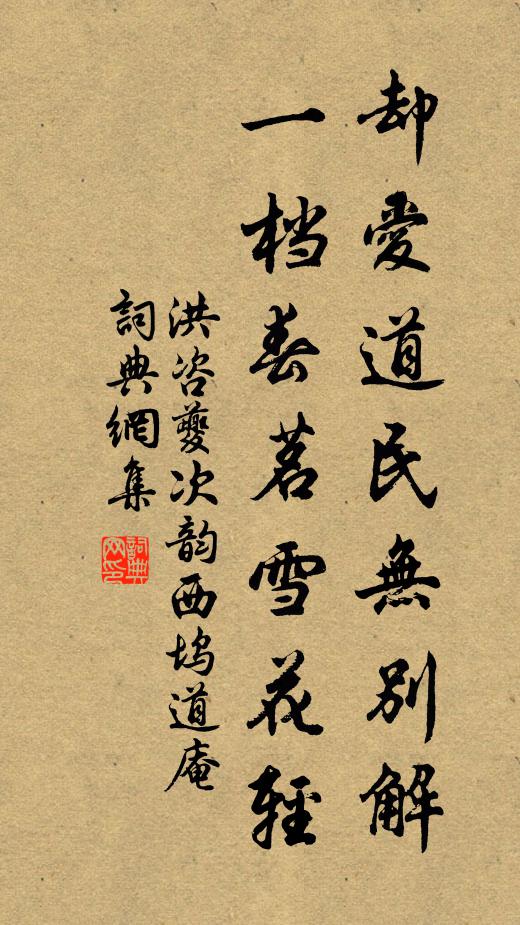 却愛道民無別解
一档春茗雪花輕
洪咨夔次韵西坞道庵
詞典網集
詞典网印